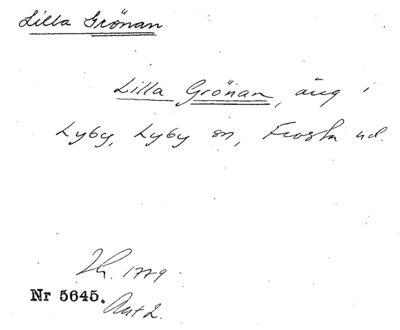 Lilla Grönan
Lilla Grönan, äng i
Lyby, Lyby sn, Frosta hd.
1779.
Nr 5645.